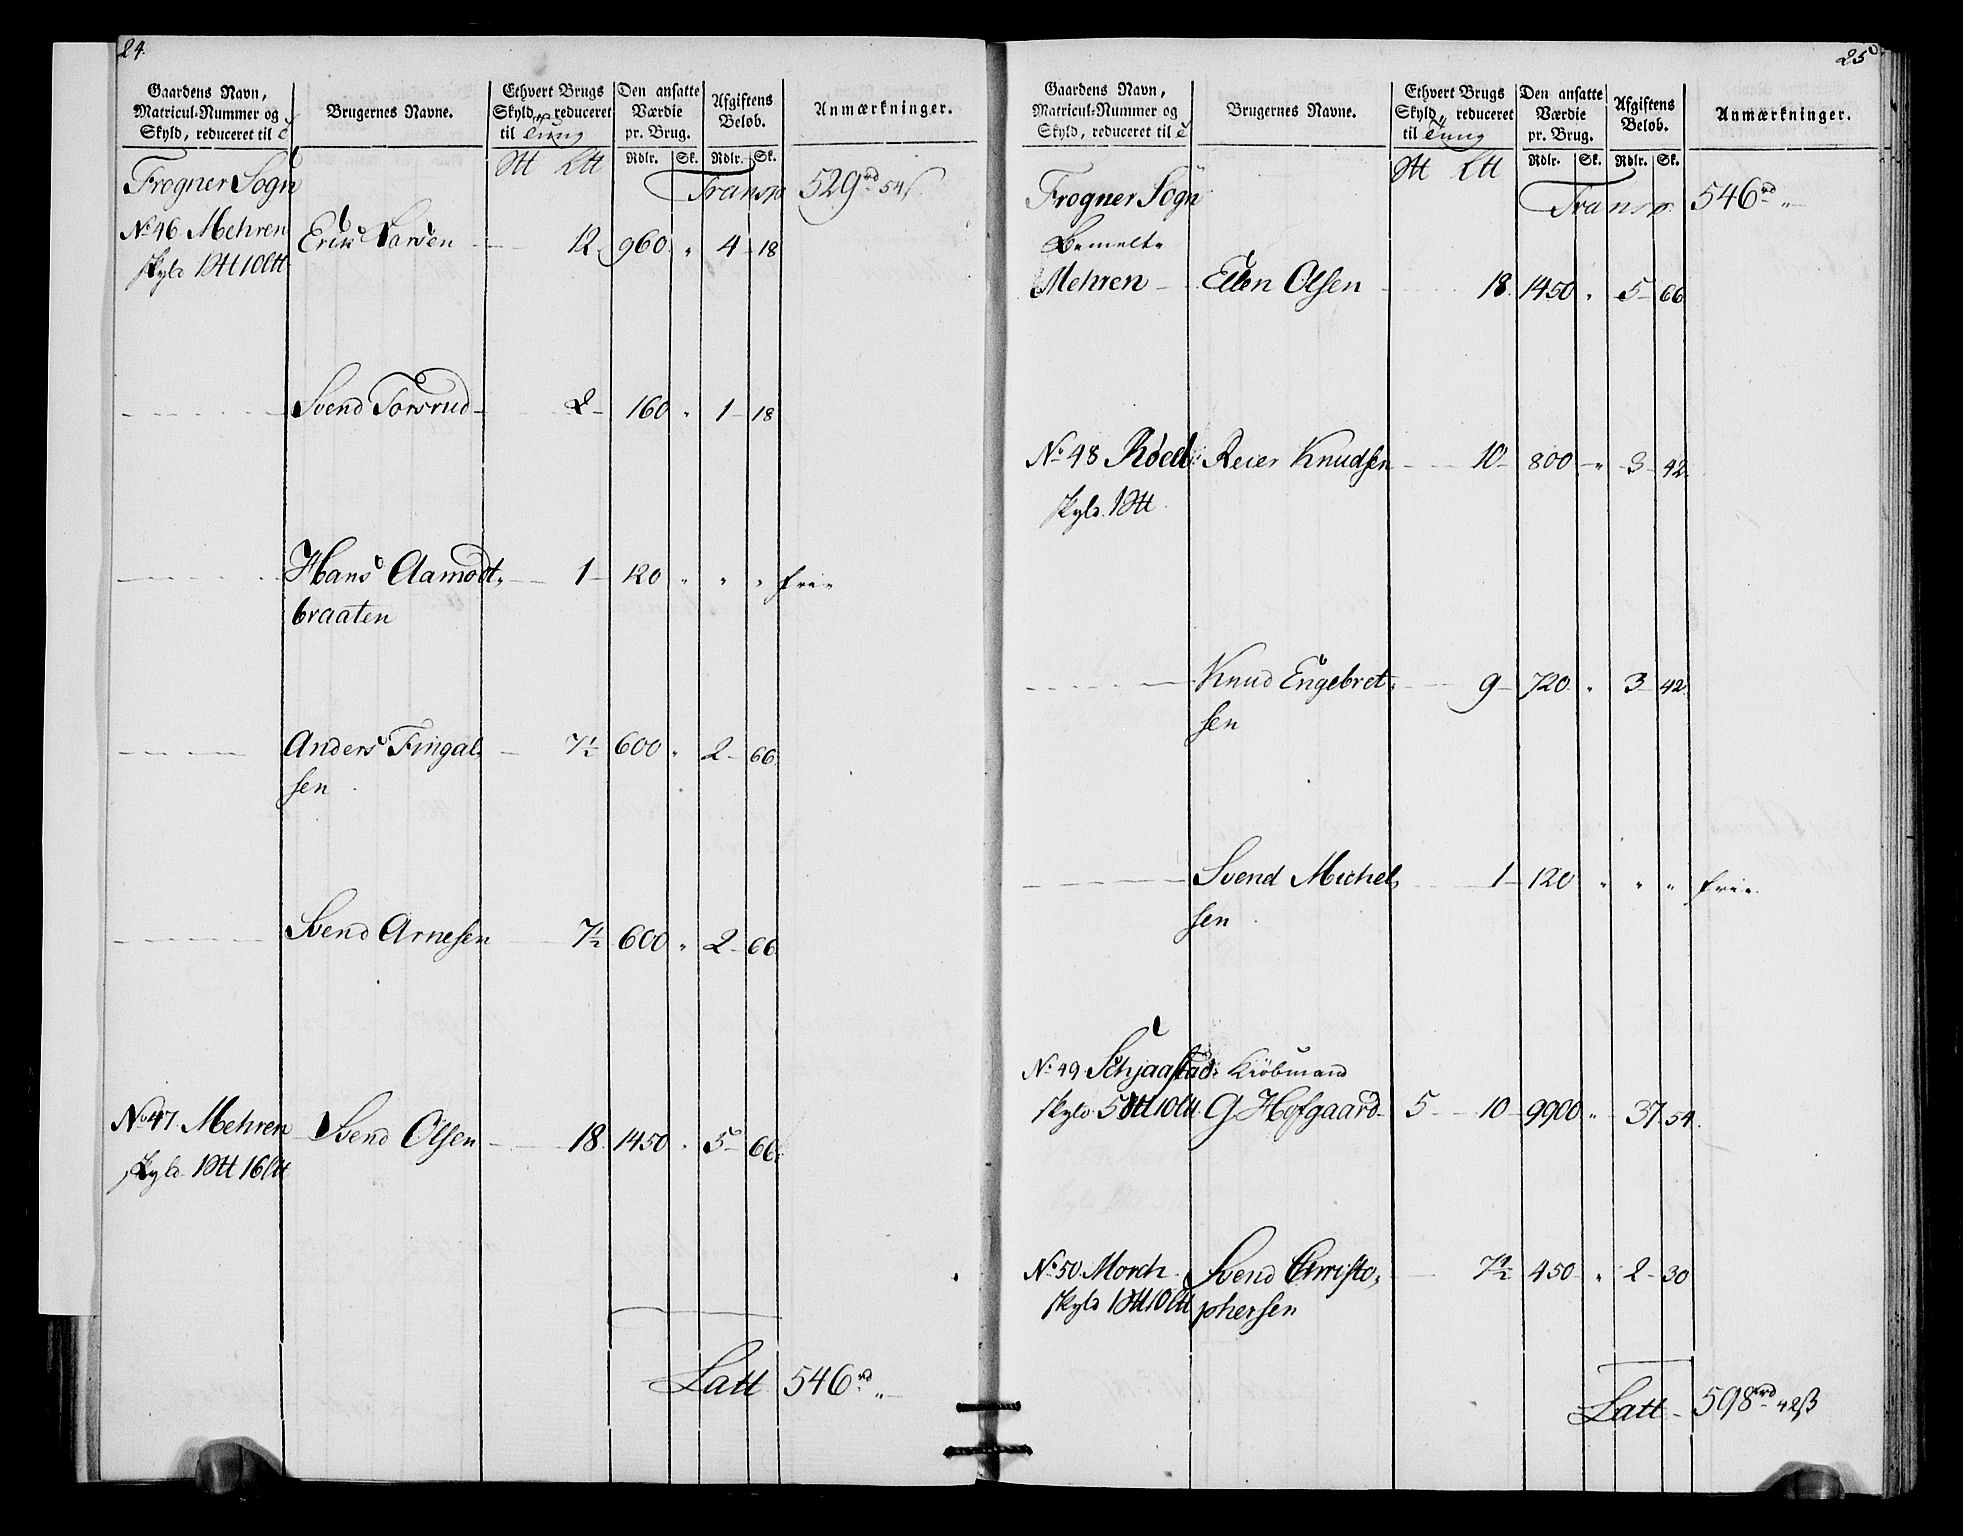 24.
Gaardens Navn,
Matricul-Nummer og
Skyld, reduceret til
Brugernes Navne.
Ethvert Brugs
Skyld, reduceret
til Tung
Den ansatte
Værdie
pr. Brug.
Afgiftens
Beløb.
Anmærkninger.
Rdlr. Sk. Rdlr. Sk.
Frogner Sogn
Transp 529 rd 54 ß
No. 46 Mehren Erik Larsen 12 960 " 4 18
skyld 1 Ltt
Svend Torsrud 2 160 " 1 18
Hans Aamodt-
braaten 1 120 " " " frie
Anders Fingal-
sen 7½ 600 " 2 66
Svend Arnesen 7½ 600 " 2 66
No. 47 Mehren Svend Olsen 18 1450 " 5 66
skyld 1 16 Ltt
Latt 546 rd "
25
Gaardens Navn,
Matricul-Nummer og
Skyld, reduceret til
Brugernes Navne.
Ethvert Brugs
Skyld, reduceret
til Tung
Den ansatte
Værdie
pr. Brug.
Afgiftens
Beløb.
Anmærkninger.
Rdlr. Sk. Rdlr. Sk.
Frogner Sogn
Transp. 546 rd "
Bemelte
Mehren Ellen Olsen 18 1450 " 5 66
No. 48 Røed Reier Knudsen 10 800 " 3 42
skyld 1
Knud Engebret-
sen 9 720 " 3 42
Svend Michel-
sen 1 120 " " " frie
No. 49 Schjaastad Kiöbmand
skyld 5 10 Ltt G. Hofgaard 5 10 9900 " 37 54
No. 50 Morch Svend Christo-
skyld 1 10 Ltt phersen 7½ 450 " 2 30
Latt 598 rd 42 ß